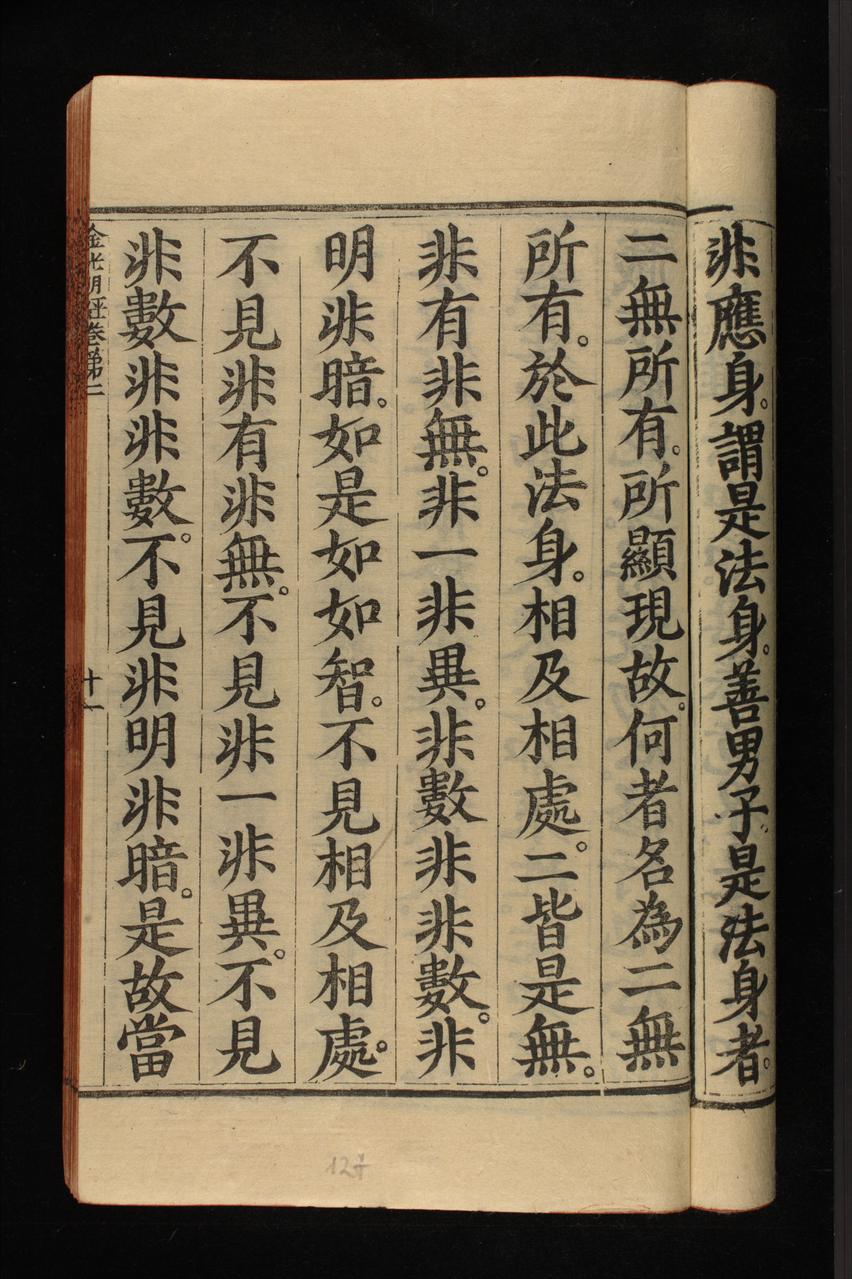 非應身。謂是法身。善男子是法身者。
二無所有。所顯現故。何者名為二無
所有。於此法身。相及相處。二皆是無。
非有非無。非一非異。非數非非數。非
明非暗。如是如如智。不見相及相處。
不見非有非無。不見非一非異。不見
非數非非數。不見非明非暗。是故當
金光明經卷第二
十一